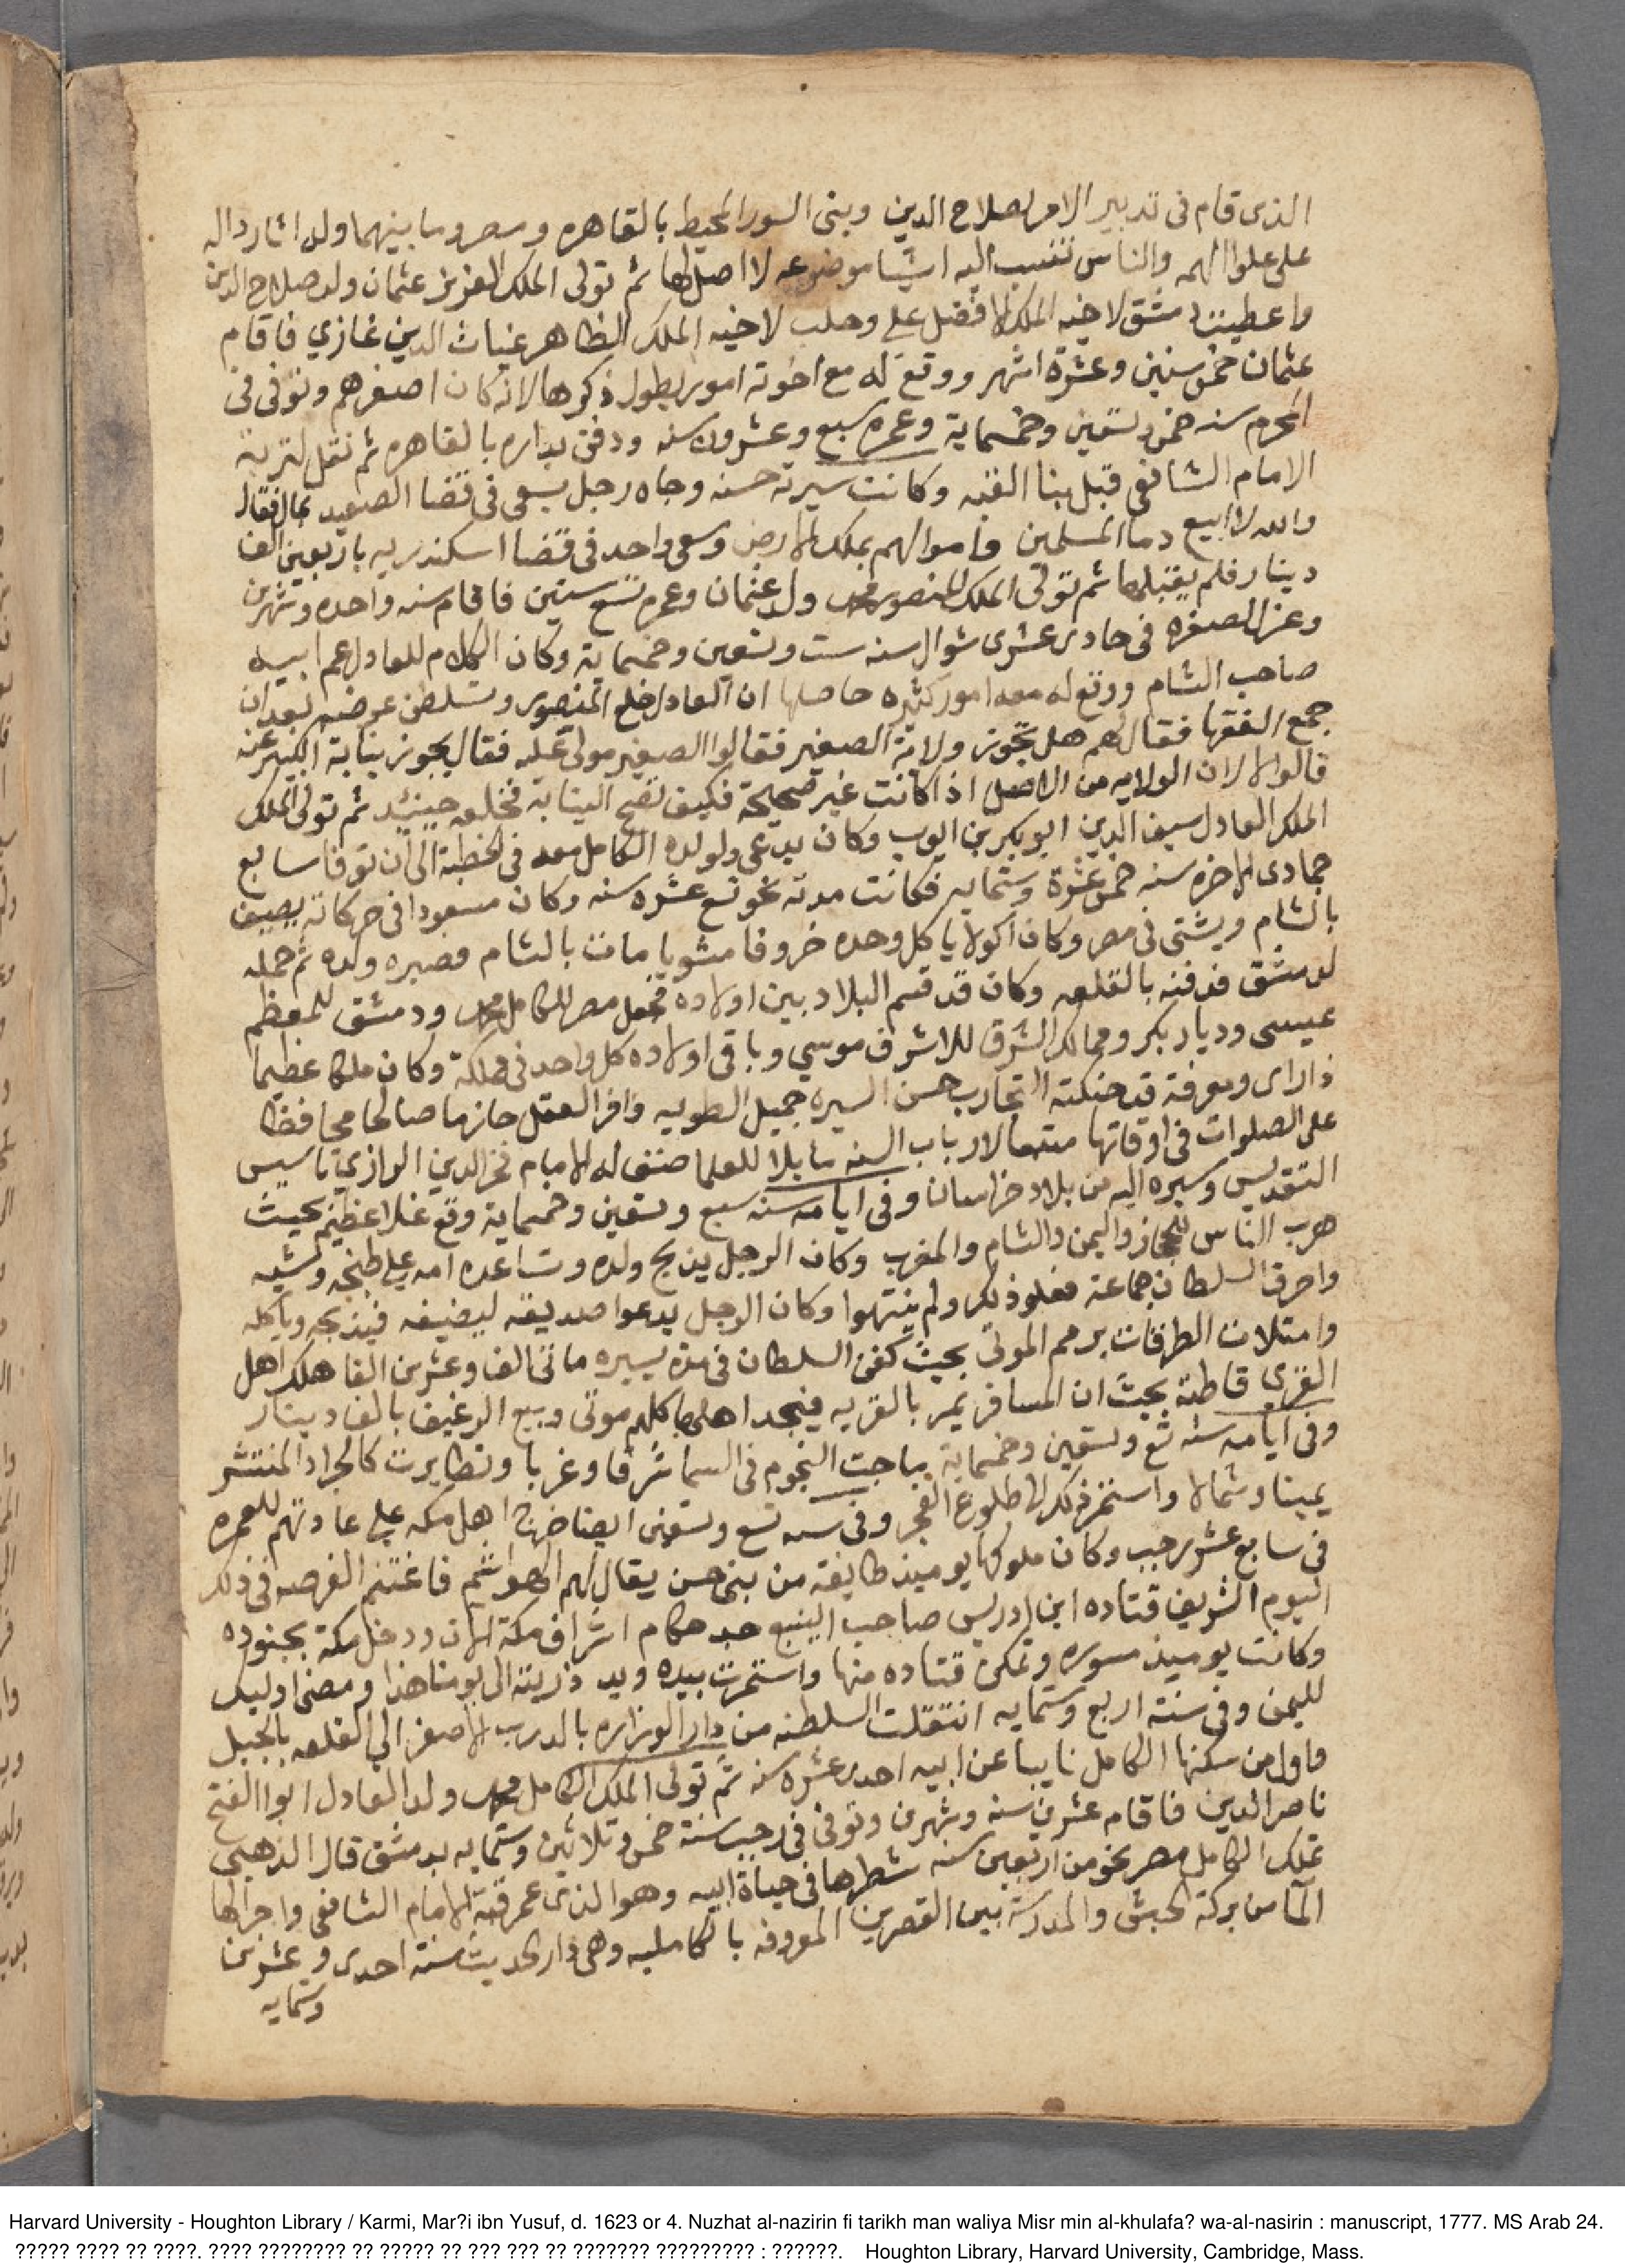 الذى قام فى تدبير الامر لصلاح الدين وبنى السور المحيط بالقاهره ومصر وما بينهما وله اثار داله
على علوا الهمه والناس تنسب اليه اشيا موضوعه لا اصل لها ثم تولى الملك العزيز عثمان ولد صلاح الدين
واعطيت دمشق لاخيه الملك الافضل علي وحلب لاخيه الملك الظاهر غياث الدين غازي فاقام
عثمان خمس سنين وعشرة اشهر ووقع له مع اخوته امور يطول ذكرها لانه كان اصغرهم وتوفى فى
المحرم سنه خمس وتسعين وخمسماية وعمره سبع وعشرون سنه ودفن بداره بالقاهره ثم نقل لتربة
الامام الشافعى قبل بنا القبه وكانت سيرته حسنه وجاه رجل يسعى فى قضا الصعيد بمال فقال
والله لا ابيع دما المسلمين واموالهم بملك الارض وسعى واحد فى قضا اسكندريه باربعين الف
دينار فلم يقبلها ثم تولى الملك المنصور محمد ولد عثمان وعمره تسع سنين فاقام سنه واحده وشهرين
وعزل لصغره فى حادى عشرى شوال سنه ست وتسعين وخمسماية وكان الكلام للعادل عم ابيه
صاحب الشام ووقع له معه امور كثيره حاصلها ان العادل خلع المنصور وتسلطن عوضه بعد ان
جمع الفقها فقال لهم هل تجوز ولاية الصغير فقالوا الصغير مولى عليه فقال يجوز بنيابة الكبير عنه
قالوا لا لان الولايه من الاصل اذا كانت غير صحيحة فكيف تصح النيابة فخلعه حينئد ثم تولى الملك
الملك العادل سيف الدين ابو بكر بن ايوب وكان يدعى ولولده الكامل معه فى الخطبة الى ان توفا سابع
جمادى الاخره سنه خمس عشرة وستمايه فكانت مدته نحو تسع عشره سنه وكان مسعودا فى حركاته يصيف
بالشام ويشتى فى مصر وكان اكولا ياكل وحده خروفا مشويا مات بالشام فصبره ولده ثم حمله
لدمشق فدفنه بالقلعه وكان قد قسم البلاد بين اولاده فجعل مصر للكامل محمد ودمشق للمعظم
عيسى وديار بكر وممالك الشرق للاشرف موسي وباقى اولاده كل واحد فى مملكة وكان ملكا عظيما
ذا راى ومعرفة قد حنكته التجارب حسن السيره جميل الطويه وافر العقل حازما صالحا محافظا
على الصلوات فى اوقاتها متبعا لارباب السنه مايلا للعلما صنف له الامام فخر الدين الرازي تاسيس
التقديس وسيره اليه من بلاد خراسان وفى ايامه سنه سبع وتسعين وخمسماية وقع غلا عظيم بحيث
هرب الناس للحجاز واليمن والشام والمغرب وكان الرجل يذبح ولده وتساعده امه على طبخه وشيه
واحرق السلطان جماعة فعلو ذلك ولم ينتهوا وكان الرجل يدعوا صديقه ليضيفه فيذبحه وياكله
وامتلات الطرقات برمم الموتى بحيث كفن السلطان فى مدة يسيره ماتى الف وعشرين الفا هلك اهل
القرى قاطبة بحيث ان المسافر يمر بالقريه فيجد اهلها كلهم موتى وبيع الرغيف بالف دينار
وفى ايامه سنه تسع وتسعين وخمسماية هاجت النجوم فى السما شرقا وغربا وتطايرت كالجراد المنتشر
يمينا وشمالا واستمر ذلك الى طلوع الفجر وفى سنه تسع وتسعين ايضا خرج اهل مكه على عادتهم للعمره
فى سابع عشر رجب وكان ملوكها يوميذ طايفة من بنى حسن يقال لهم الهواشم فاغتنم الفرصه فى ذلك
اليوم الشريف قتاده ابن ادريس صاحب الينبع جد حكام اشراف مكة الان ودخل مكة بجنوده
وكانت يوميذ مسوره وتمكن قتاده منها واستمرت بيده ويد ذريته الى يومنا هذا ومضى اوليك
لليمن وفى سنة اربع وستمايه انتقلت السلطنه من دار الوزاره بالدرب الاصفر الى القلعه بالجبل
واول من سكنها الكامل نايبا عن ابيه احدى عشره سنه ثم تولى الملك الكامل محمد ولد العادل ابوا الفتح
ناصر الدين فاقام عشرين سنه وشهرين وتوفى فى رجب سنة خمس وثلاثين وستمايه بدمشق قال الذهبى
تملك الكامل مصر نحو من اربعين سنه شطرها فى حياة ابيه وهو الذى عمر قبة الامام الشافعى واجرا لها
المآ من بركة الحبش والمدرسة بين القصرين المعروفه بالكامليه وهى دار الحديث سنة احدى وعشرين
وستمايه
Harvard University - Houghton Library / Karmi, Mar?i ibn Yusuf, d. 1623 or 4. Nuzhat al-nazirin fi tarikh man waliya Misr min al-khulafa? wa-al-nasirin : manuscript, 1777. MS Arab 24.
????? ???? ?? ????. ???? ???????? ?? ????? ?? ??? ??? ?? ??????? ????????? : ??????. Houghton Library, Harvard University, Cambridge, Mass.